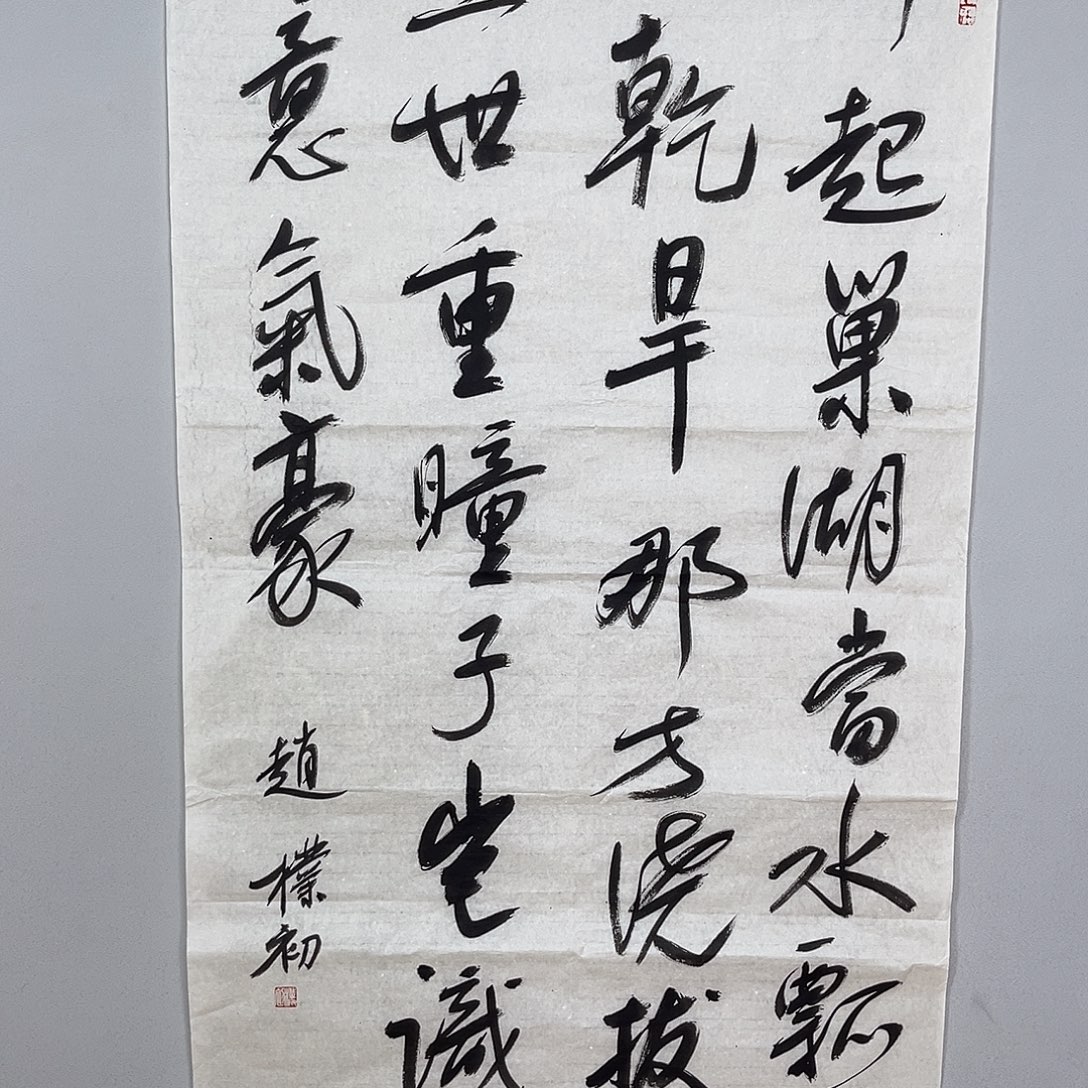 起巢湖當水瓢
乾旱那方澆拔
世重瞳子豈識
意氣豪
趙樸初